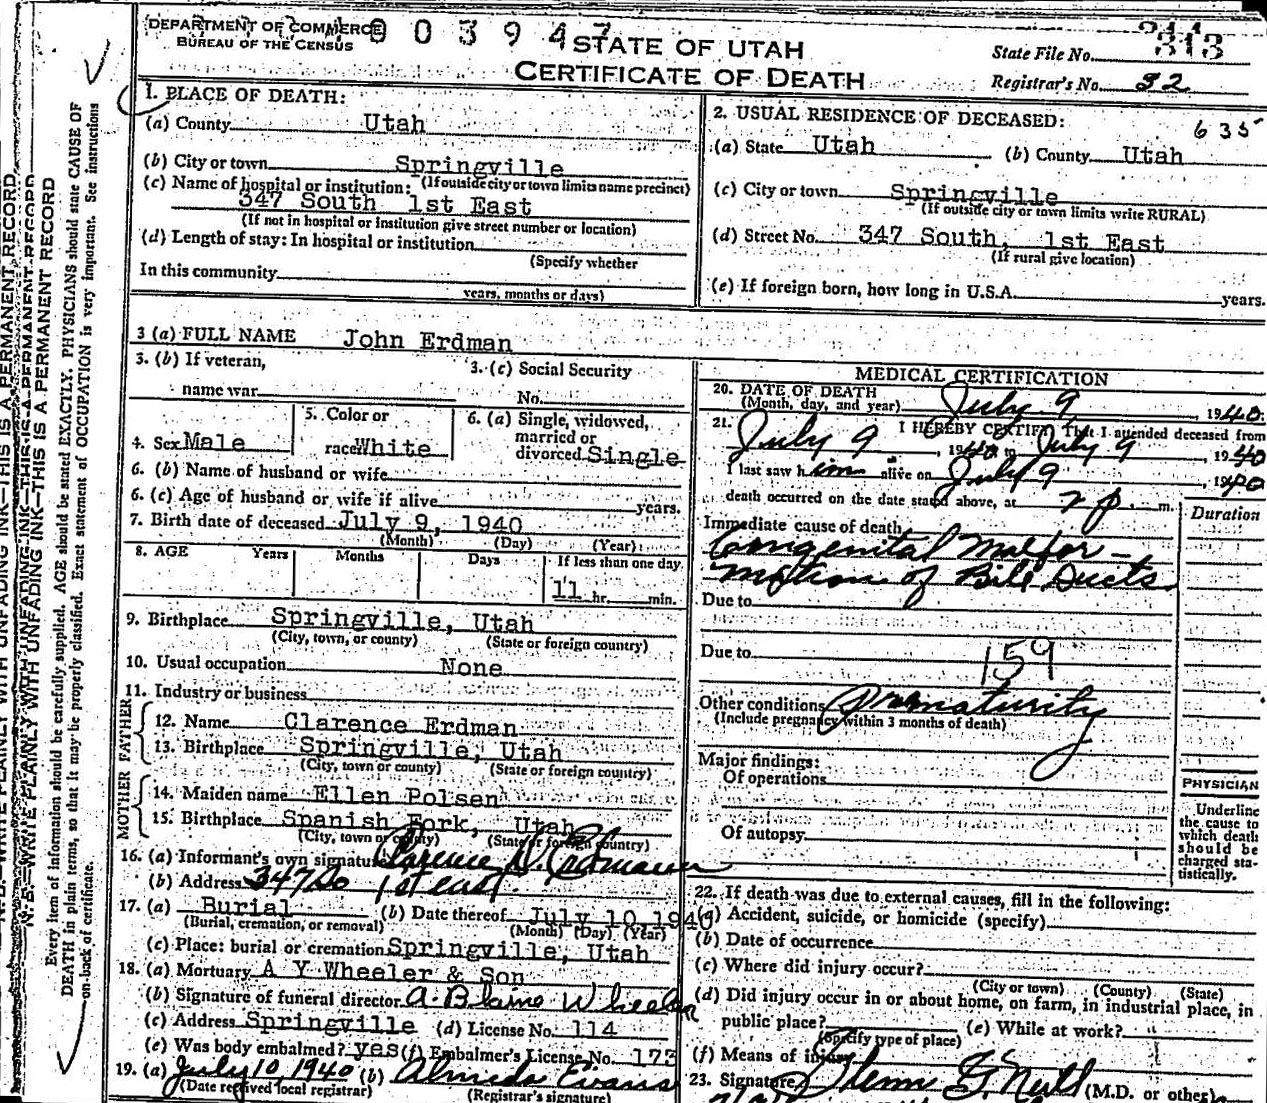 DEPARTMENT OF COMMERCE
BUREAU OF THE CENSUS
0 0 3 9 4 7
STATE OF UTAH
CERTIFICATE OF DEATH
State File No. 313
Registrar's No. 32
1. PLACE OF DEATH:
(a) County Utah
(b) City or town Springville
(If outside city or town limits name precinct)
(c) Name of hospital or institution:
347 South 1st East
(If not in hospital or institution give street number or location)
(d) Length of stay: In hospital or institution
(Specify whether
In this community
years, months or days)
2. USUAL RESIDENCE OF DECEASED:
635
(a) State Utah (b) County Utah
(c) City or town Springville
(If outside city or town limits write RURAL)
(d) Street No. 347 South, 1st East
(If rural give location)
(e) If foreign born, how long in U.S.A. years.
3 (a) FULL NAME John Erdman
3. (b) If veteran,
name war
3. (c) Social Security
No.
4. Sex Male
5. Color or
race White
6. (a) Single, widowed,
married or
divorced Single
6. (b) Name of husband or wife
6. (c) Age of husband or wife if alive years.
7. Birth date of deceased July 9, 1940
(Month) (Day) (Year)
8. AGE Years Months Days If less than one day
11 hr. min.
9. Birthplace Springville, Utah
(City, town, or county) (State or foreign country)
10. Usual occupation None
11. Industry or business
FATHER
12. Name Clarence Erdman
13. Birthplace Springville, Utah
(City, town or county) (State or foreign country)
MOTHER
14. Maiden name Ellen Polsen
15. Birthplace Spanish Fork, Utah
(City, town or county) (State or foreign country)
16. (a) Informant's own signature Clarence D. Erdmann
(b) Address 347 So 1st east
17. (a) Burial (b) Date thereof July 10, 1940
(Burial, cremation, or removal) (Month) (Day) (Year)
(c) Place: burial or cremation Springville, Utah
18. (a) Mortuary A Y Wheeler & Son
(b) Signature of funeral director A. Blaine Wheeler
(c) Address Springville (d) License No. 114
(e) Was body embalmed? yes (f) Embalmer's License No. 173
19. (a) July 10, 1940 (b) Almeda Evans
(Date received local registrar) (Registrar's signature)
MEDICAL CERTIFICATION
20. DATE OF DEATH
(Month, day, and year) July 9, 1940.
21. I HEREBY CERTIFY, That I attended deceased from
July 9, 1940 to July 9, 1940
I last saw him alive on July 9, 1940
death occurred on the date stated above, at 2 p. m.
Duration
Immediate cause of death
Congenital Malfor-
mation of Bile Ducts
Due to
Due to
159
Other conditions Prematurity
(Include pregnancy within 3 months of death)
Major findings:
Of operations
Of autopsy
PHYSICIAN
Underline
the cause to
which death
should be
charged sta-
tistically.
22. If death was due to external causes, fill in the following:
(a) Accident, suicide, or homicide (specify)
(b) Date of occurrence
(c) Where did injury occur?
(City or town) (County) (State)
(d) Did injury occur in or about home, on farm, in industrial place, in
public place? (e) While at work?
(Specify type of place)
(f) Means of injury
23. Signature (M.D. or other)
N.B.—WRITE PLAINLY WITH UNFADING INK—THIS IS A PERMANENT RECORD
Every item of information should be carefully supplied. AGE should be stated EXACTLY. PHYSICIANS should state CAUSE OF
DEATH in plain terms, so that it may be properly classified. Exact statement of OCCUPATION is very important. See instructions
on back of certificate.